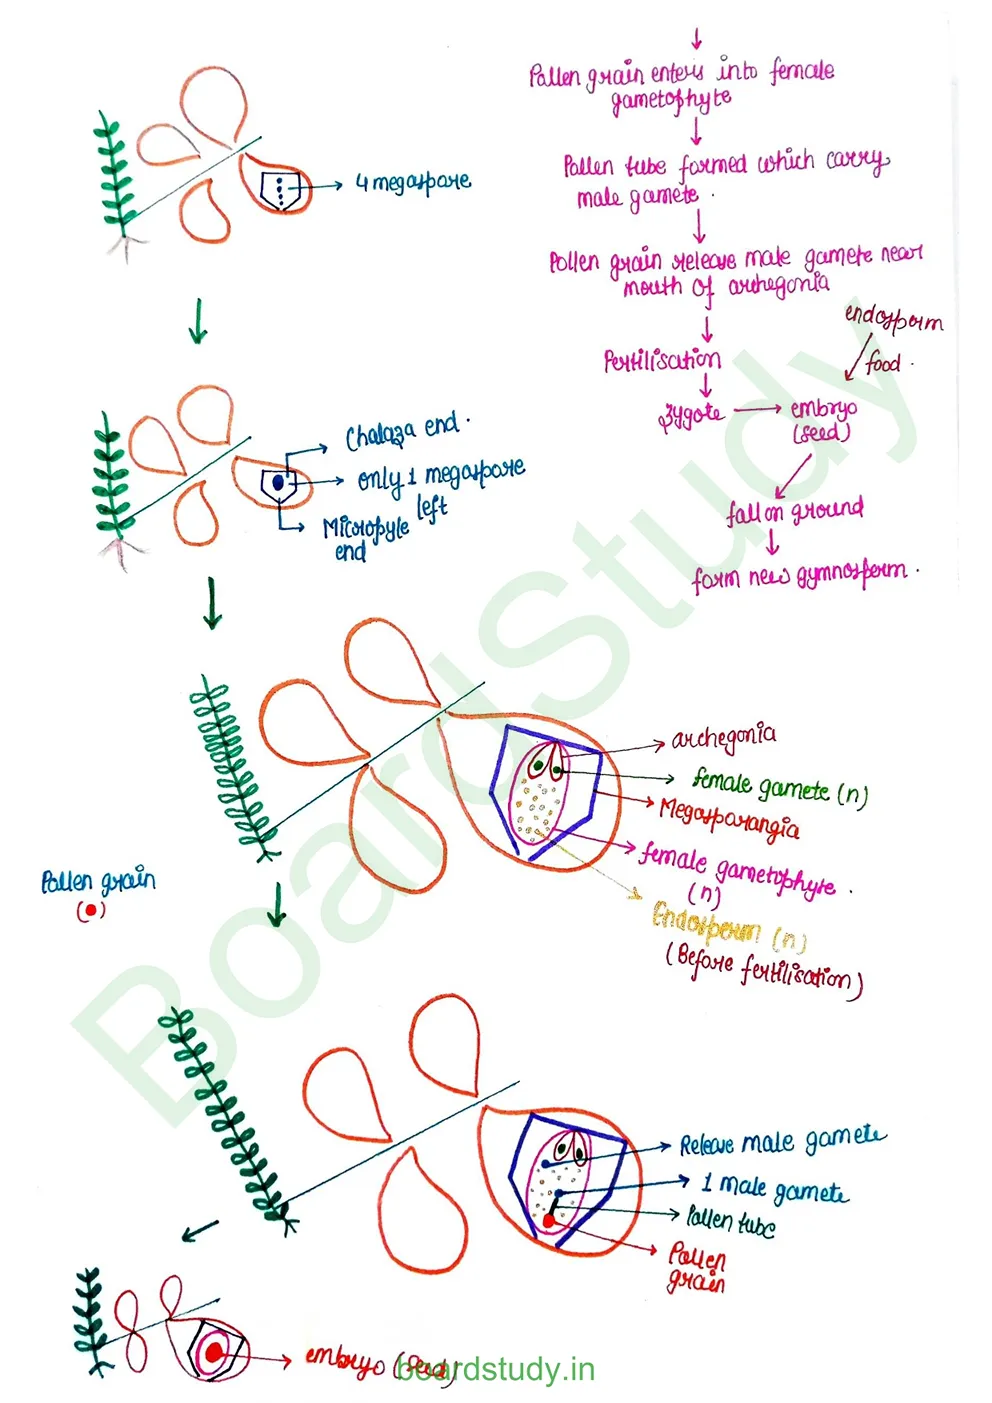 Pollen grain enters into female
gametophyte
Pollen tube formed which carry
male gamete.
Pollen grain release male gamete near
mouth of archegonia
Fertilisation
zygote
embryo
(seed)
endosperm
food.
fall on ground
form new gymnosperm.
4 megaspore
Chalaza end.
only 1 megaspore
left
Micropyle
end
archegonia
female gamete (n)
Megasporangia
female gametophyte.
(n)
Endosperm (n)
(Before fertilisation)
Pollen grain
( )
Release male gamete
1 male gamete
Pollen tube
Pollen
grain
embryo (seed)
boardstudy.in
BoardStudy